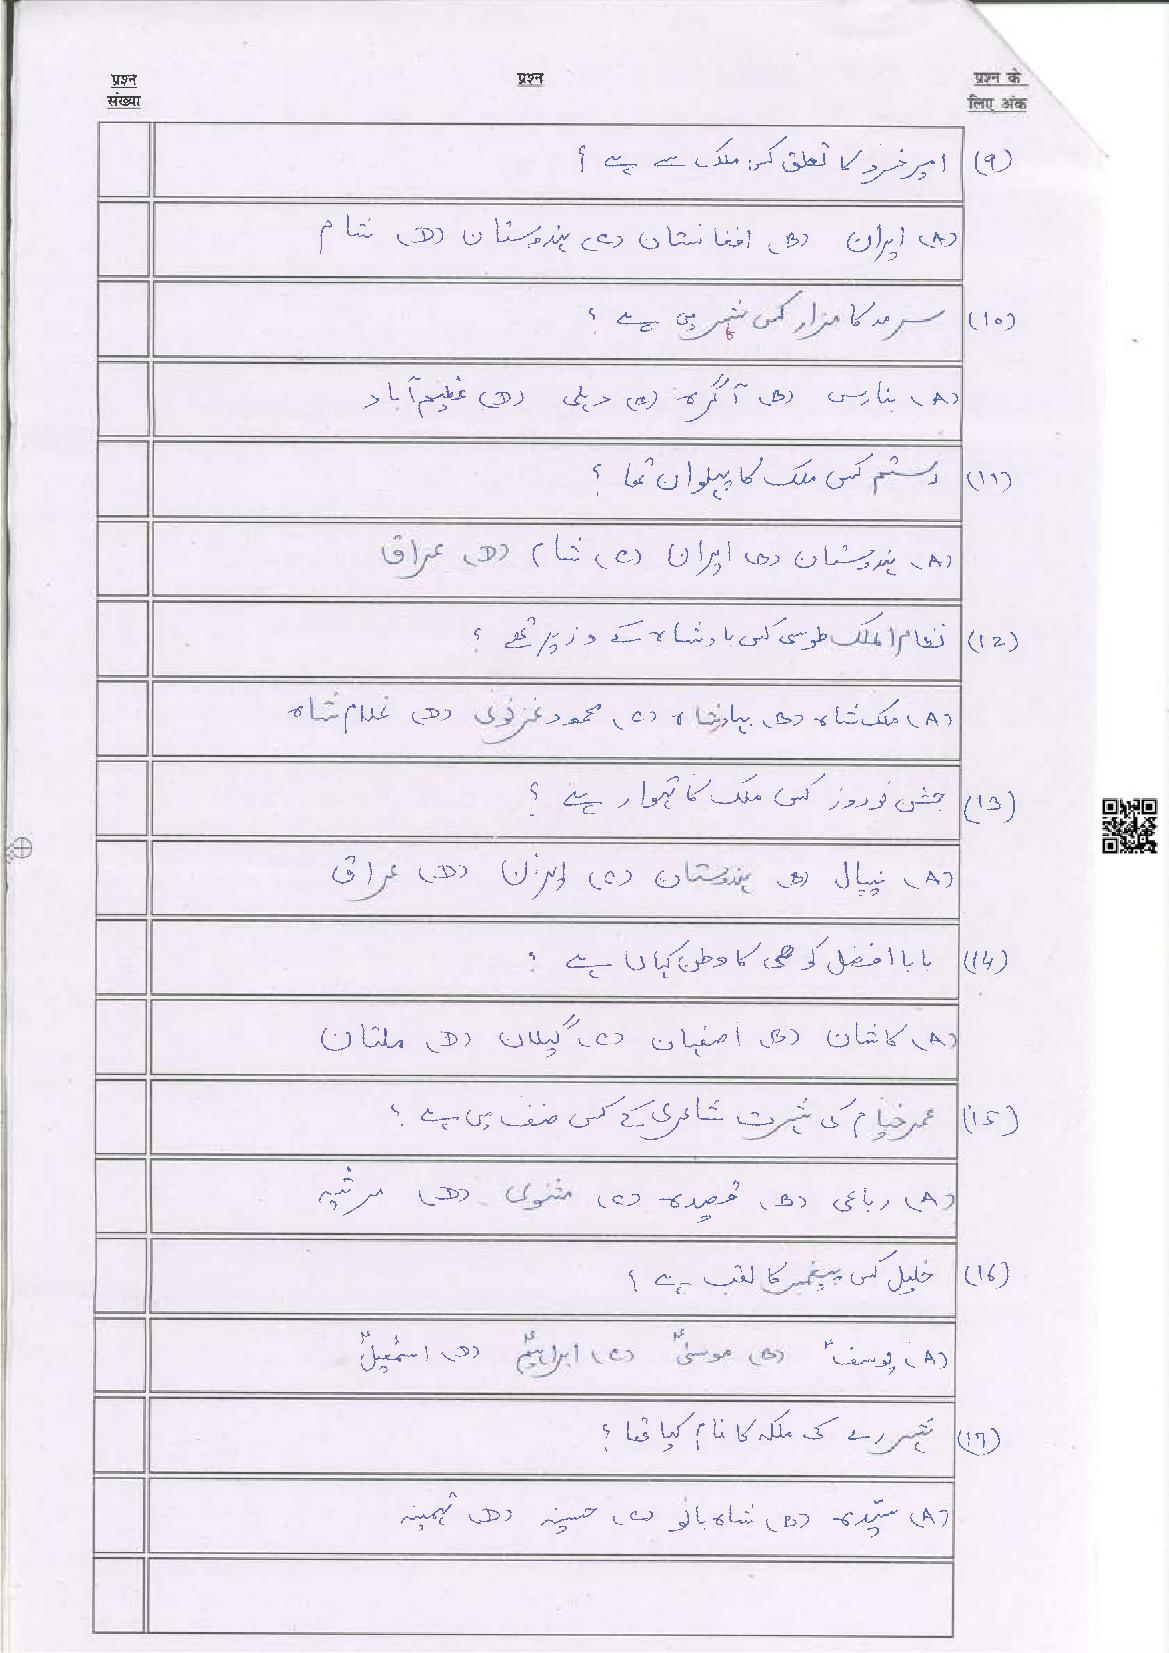 प्रश्न संख्या
प्रश्न
प्रश्न के लिए अंक
(9) امیر خسرو کا تعلق کس ملک سے ہے ؟
(A) ایران (B) افغانستان (C) ہندوستان (D) شام
(10) سرمد کا مزار کس شہر میں ہے ؟
(A) بنارس (B) آگرہ (C) دہلی (D) عظیم آباد
(11) رستم کس ملک کا پہلوان تھا ؟
(A) ہندوستان (B) ایران (C) شام (D) عراق
(12) نظام الملک طوسی کس بادشاہ کے وزیر تھے ؟
(A) ملک شاہ (B) بہادر شاہ (C) محمود غزنوی (D) غلام شاہ
(13) جشن نوروز کس ملک کا تہوار ہے ؟
(A) نیپال (B) ہندوستان (C) ایران (D) عراق
(14) بابا افضل کوہی کا وطن کہاں ہے ؟
(A) کاشان (B) اصفہان (C) گیلان (D) ملتان
(15) عمر خیام کی شہرت شاعری کے کس صنف میں ہے ؟
(A) رباعی (B) قصیدہ (C) مثنوی (D) مرثیہ
(16) خلیل کس پیغمبر کا لقب ہے ؟
(A) یوسفؑ (B) موسیٰؑ (C) ابراہیمؑ (D) اسمٰعیلؑ
(17) شہر رے کی ملکہ کا نام کیا تھا ؟
(A) سیّدہ (B) شاہ بانو (C) حسینہ (D) تہمینہ